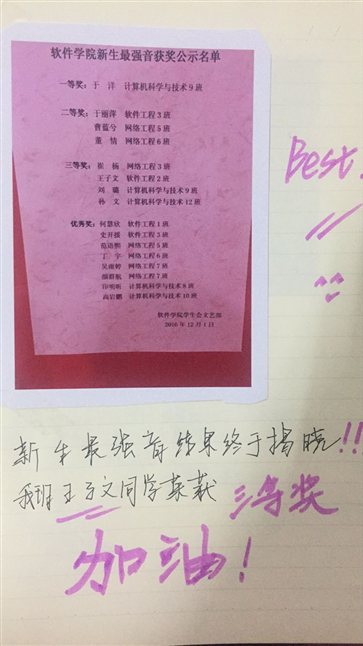 软件学院新生最强音获奖公示名单
一等奖：于 洋 计算机科学与技术9班
二等奖：于丽萍 软件工程3班
曹蓝兮 网络工程5班
董 情 网络工程6班
三等奖：崔 杨 网络工程3班
王子文 软件工程2班
刘 璐 计算机科学与技术9班
孙 文 计算机科学与技术12班
优秀奖：何慧欣 软件工程1班
史开援 软件工程3班
范语熙 网络工程5班
丁 宇 网络工程6班
吴雨婷 网络工程7班
网络工程7班
印明昕 计算机科学与技术8班
高岩鹏 计算机科学与技术10班
软件学院学生会文艺部
2016年12月1日
Best!
新生最强音结果终于揭晓!!!
我班王子文同学荣获 三等奖
加油!